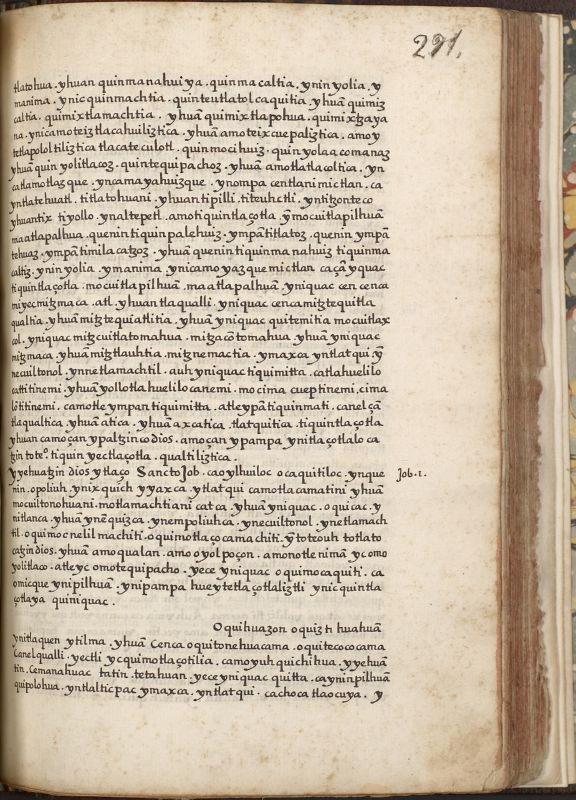 291.
tlatohua. yhuan quinmanahuiya. quinmacaltia, ynin yolia, y
manima. ynic quinmachtia. quinteutlatolcaquitia yhuã quimiz
caltia. quimixtlamachtia. yhuã quimixtlapohua. quimixtzaya
na. ynicamo teiztlacahuiliztica. yhuã amo teixcuepaliztica. amo y
tetlapololtiliztica tlacateculotl. quinmocihuiz. quinyolacomanaz
yhuã quin yolitlacoz. quintequipachoz. yhuã amotlatlacoltica. yn
catlamotlazque. yncamayahuizque. ynompa centlani mictlan. ca
yntlatehuatl. titlatohuani. yhuan tipilli. titeuhctli. yntitzonteco
yhuantix tiyollo. ynaltepetl. amo tiquintlaçotla. ỹ mocuitlapilhuã
maatlapalhua. quenin tiquinpalehuiz. ympãtitlatoz. quenin ympã
tehuaz. ympãtimilacatzoz. yhuã quenin tiquinmanahuiz tiquinma
caltiz. ynin yolia. ymanima. ynicamo yazque mictlan caçã yquac
tiquintlaçotla. mocuitlapilhuã. maatlapalhuã. yniquac cen cenca
miyec mizmaca. atl. yhuan tlaqualli. yniquac cenca miztequitla
qualtia. yhuã miztequiatlitia. yhuã yniquac quitemitia mocuitlax
col. yniquac mizcuitlatomahua. mizacõtomahua yhuã yniquac
mizmaca. yhuã miztlauhtia. miznemactia. ymaxca yntlatqui ỹ
necuiltonol. ynnetlamachtil. auh yniquac tiquimitta. catlahuelilo
catitinemi. yhuã yollotlahuelilocanemi. mocima cueptinemi, cima
lõtitinemi. camotle ympan tiquimitta. atle ypã tiquinmati. canel çã
tlaqualtica. yhuã atica. yhuã axcatica tlatquitica. tiquintlaçotla
yhuan camo çan ypaltzinco dios. amo çan ypampa ynitlaçotlaloca
tzin toteº. tiquin yectlaçotla. qualtiliztica.
Yyehuatzin dios ytlaço Sancto Job. ca oylhuiloc ocaquitiloc. ynque
nin. opoliuh. ynixquich yyaxca. ytlatqui camotlacamatini yhuã
mocuiltonohuani. motlamachtiani catca yhuã yniquac. oquicac. y
nitlanca. yhuã ynẽquizca. ynempoliuhca. ynecuiltonol. ynetlamach
til. oquimocnelilmachiti. oquimotlaçocamachiti. ỹ toteouh totlato
catzin dios. yhuã amo qualan. amo oyolpoçon. amonotle nimã yc omo
yolitlaco. atle yc omotequipacho. yece yniquac oquimocaquiti. ca
omicque ynipilhuã. ynipampa huey tetlaçotlaliztli ynic quintla
çotlaya quiniquac.
Oquihuazon oquizti huahuã
ynitlaquen ytilma. yhuã Cenca oquitonehuacama. oquitecococama
Canel qualli. yectli ycquimotlaçotilia. camo yuh quichihua. yyehuã
tin. Cemanahuac tatin. tetahuan. yece yniquac quitta. caynin pilhuã
quipolohua. yntlalticpac ymaxca. yntlatqui. cachocatlaocuya. y
Job. 1.